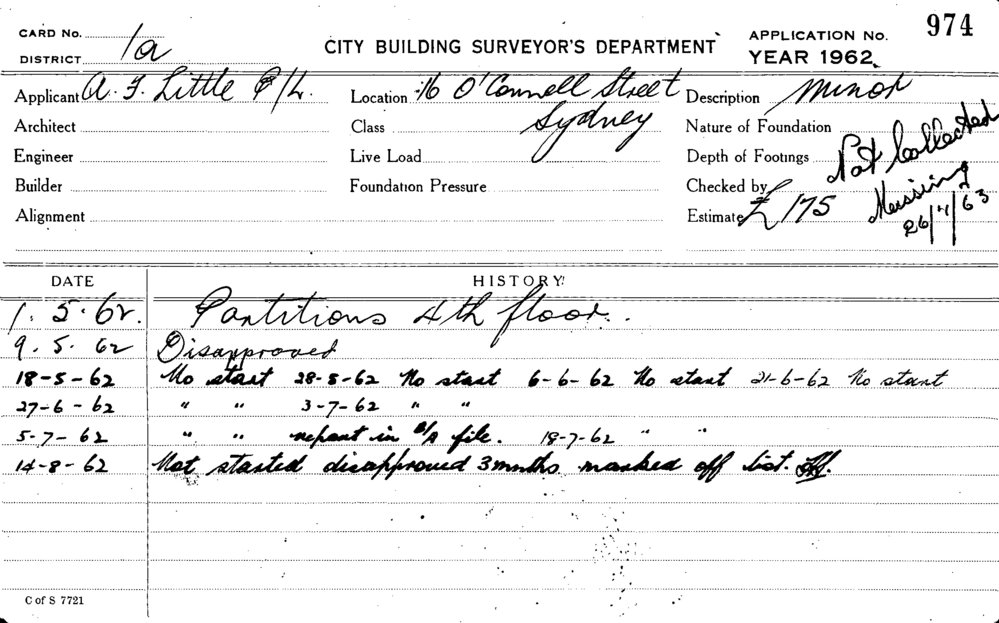 CARD No.
DISTRICT 1a
CITY BUILDING SURVEYOR'S DEPARTMENT
APPLICATION No. 974
YEAR 1962
Applicant A. J. Little P/L. Location 16 O'Connell Street Description Minor
Architect Class Sydney Nature of Foundation
Engineer Live Load Depth of Footings Not Collected
Builder Foundation Pressure Checked by Missing
Alignment Estimate £175 26/7/63
DATE HISTORY
1.5.62. Partitions 4th floor.
9.5.62 Disapproved
18-5-62 No start 28-5-62 No start 6-6-62 No start 21-6-62 No start
27-6-62 " " 3-7-62 " "
5-7-62 " " report in B/A file. 18-7-62 " "
14-8-62 Not started disapproved 3 mnths marked off list.
C of S 7721